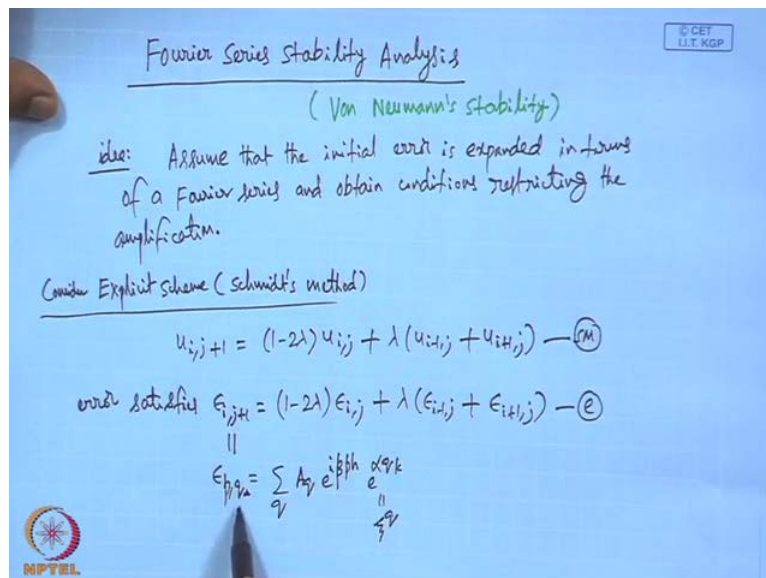 © CET
I.I.T. KGP
Fourier Series Stability Analysis
(Von Neumann's Stability)
idea: Assume that the initial error is expanded in terms
of a Fourier series and obtain conditions restricting the
amplification.
Consider Explicit scheme (Schmidt's method)
u_{i,j+1} = (1-2λ) u_{i,j} + λ (u_{i-1,j} + u_{i+1,j}) — (SM)
error satisfies ε_{i,j+1} = (1-2λ) ε_{i,j} + λ (ε_{i-1,j} + ε_{i+1,j}) — (e)
||
ε_{p,q} = Σ_q A_q e^{iβph} e^{αqk}
||
ξ^q
NPTEL